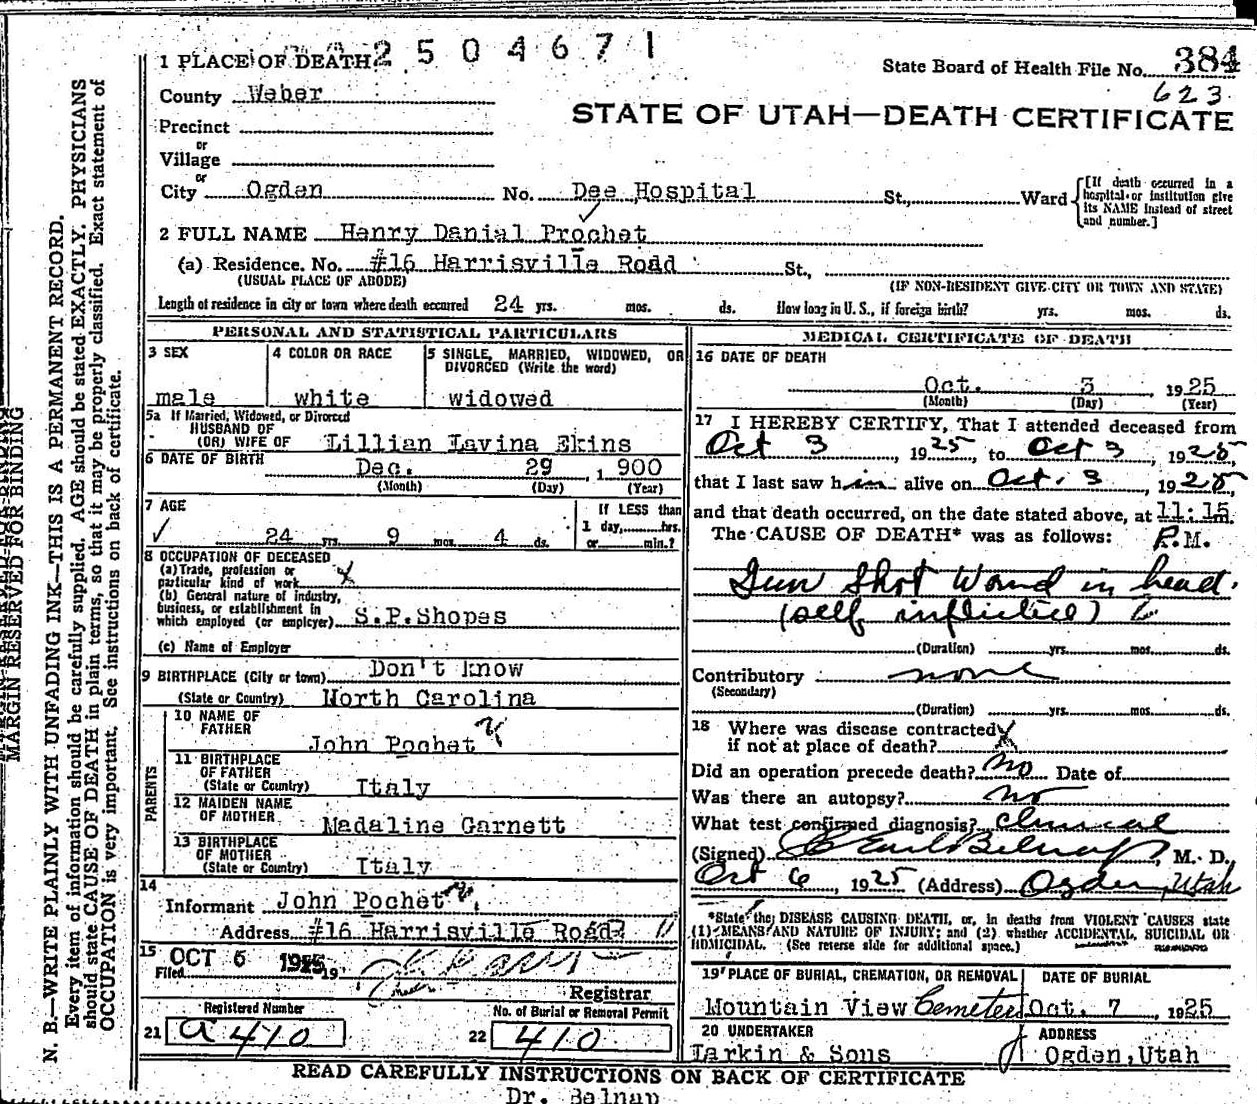 2504671
State Board of Health File No. 384
623
1 PLACE OF DEATH
County Weber
STATE OF UTAH—DEATH CERTIFICATE
Precinct
or
Village
or
City Ogden No. Dee Hospital St., Ward [If death occurred in a hospital or institution give its NAME instead of street and number.]
2 FULL NAME Henry Danial Prochet
(a) Residence. No. #16 Harrisville Road St.,
(USUAL PLACE OF ABODE) (IF NON-RESIDENT GIVE CITY OR TOWN AND STATE)
Length of residence in city or town where death occurred 24 yrs. mos. ds. How long in U. S., if foreign birth? yrs. mos. ds.
PERSONAL AND STATISTICAL PARTICULARS
3 SEX male
4 COLOR OR RACE white
5 SINGLE, MARRIED, WIDOWED, OR DIVORCED (Write the word) widowed
5a If Married, Widowed, or Divorced
HUSBAND OF
(OR) WIFE OF Lillian Lavina Ekins
6 DATE OF BIRTH Dec. 29, 1900
(Month) (Day) (Year)
7 AGE
24 yrs. 9 mos. 4 ds.
If LESS than
1 day, hrs.
or min.?
8 OCCUPATION OF DECEASED
(a) Trade, profession or
particular kind of work
(b) General nature of industry,
business, or establishment in
which employed (or employer) S.P.Shopes
(c) Name of Employer
9 BIRTHPLACE (City or town) Don't know
(State or Country) North Carolina
PARENTS
10 NAME OF
FATHER John Pochet
11 BIRTHPLACE
OF FATHER
(State or Country) Italy
12 MAIDEN NAME
OF MOTHER Madaline Garnett
13 BIRTHPLACE
OF MOTHER
(State or Country) Italy
14
Informant John Pochet
Address #16 Harrisville Road
15
Filed OCT 6 1925
Registrar
Registered Number
21 a 410
No. of Burial or Removal Permit
22 410
MEDICAL CERTIFICATE OF DEATH
16 DATE OF DEATH
Oct. 3 1925
(Month) (Day) (Year)
17 I HEREBY CERTIFY, That I attended deceased from
Oct 3, 1925, to Oct 3, 1925,
that I last saw him alive on Oct. 3, 1925,
and that death occurred, on the date stated above, at 11:15 m.
The CAUSE OF DEATH* was as follows: P.M.
Gun Shot Wound in head.
(self inflicted)
(Duration) yrs. mos. ds.
Contributory none
(Secondary)
(Duration) yrs. mos. ds.
18 Where was disease contracted
if not at place of death?
Did an operation precede death? no Date of
Was there an autopsy? no
What test confirmed diagnosis? Clinical
(Signed) Earl Belnap, M. D.
Oct 6, 1925 (Address) Ogden, Utah
*State the DISEASE CAUSING DEATH, or, in deaths from VIOLENT CAUSES state
(1) MEANS AND NATURE OF INJURY; and (2) whether ACCIDENTAL, SUICIDAL OR
HOMICIDAL. (See reverse side for additional space.)
19 PLACE OF BURIAL, CREMATION, OR REMOVAL
Mountain View Cemetery
DATE OF BURIAL
Oct. 7, 1925
20 UNDERTAKER
Larkin & Sons
ADDRESS
Ogden, Utah
READ CAREFULLY INSTRUCTIONS ON BACK OF CERTIFICATE
Dr. Belnap
MARGIN RESERVED FOR BINDING
N. B.—WRITE PLAINLY WITH UNFADING INK—THIS IS A PERMANENT RECORD.
Every item of information should be carefully supplied. AGE should be stated EXACTLY. PHYSICIANS
should state CAUSE OF DEATH in plain terms, so that it may be properly classified. Exact statement of
OCCUPATION is very important. See instructions on back of certificate.